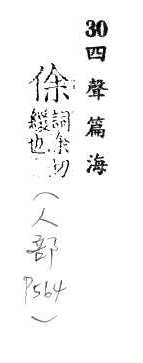 30四聲篇海
俆
詞余切
緩也
(人部P564)